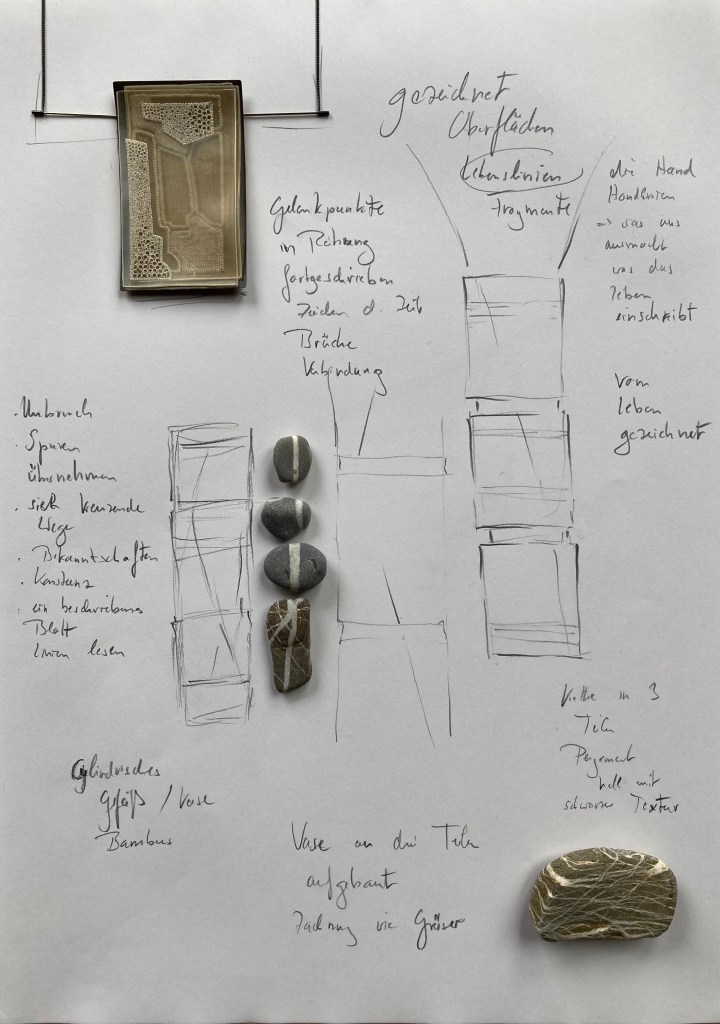 gezeichnet
Oberflächen
Lebenslinien
Fragmente
die Hand
Handlinien
=> was uns
ausmacht
was das
Leben
einschreibt
vom
Leben
gezeichnet
Gelenkpunkte
in Röhrung
fortgeschrieben
Zeichen d. Zeit
Brüche
Verbindung
· Umbruch
· Spuren
übernehmen
· sich kreuzende
Wege
· Bekanntschaften
· Konstanz
· ein beschriebenes
Blatt
Linien lesen
Cylindrisches
Gefäß / Vase
Bambus
Vase an drei Teilen
aufgebaut
wie Gräser
in 3
Teilen
Pergament
hell mit
schwarzer Textur